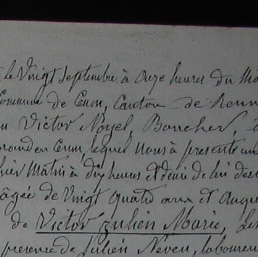 le Vingt Septembre à Onze heures du Ma
Commune de Cenon, Canton de
Victor Noyel, Boucher,
lequel nous a présenté un
hier Matin à dix heures et demie de lui déc
âgée de Vingt quatre ans et
de Victor Julien Marie, les
présence de Julien Neveu, laboureur